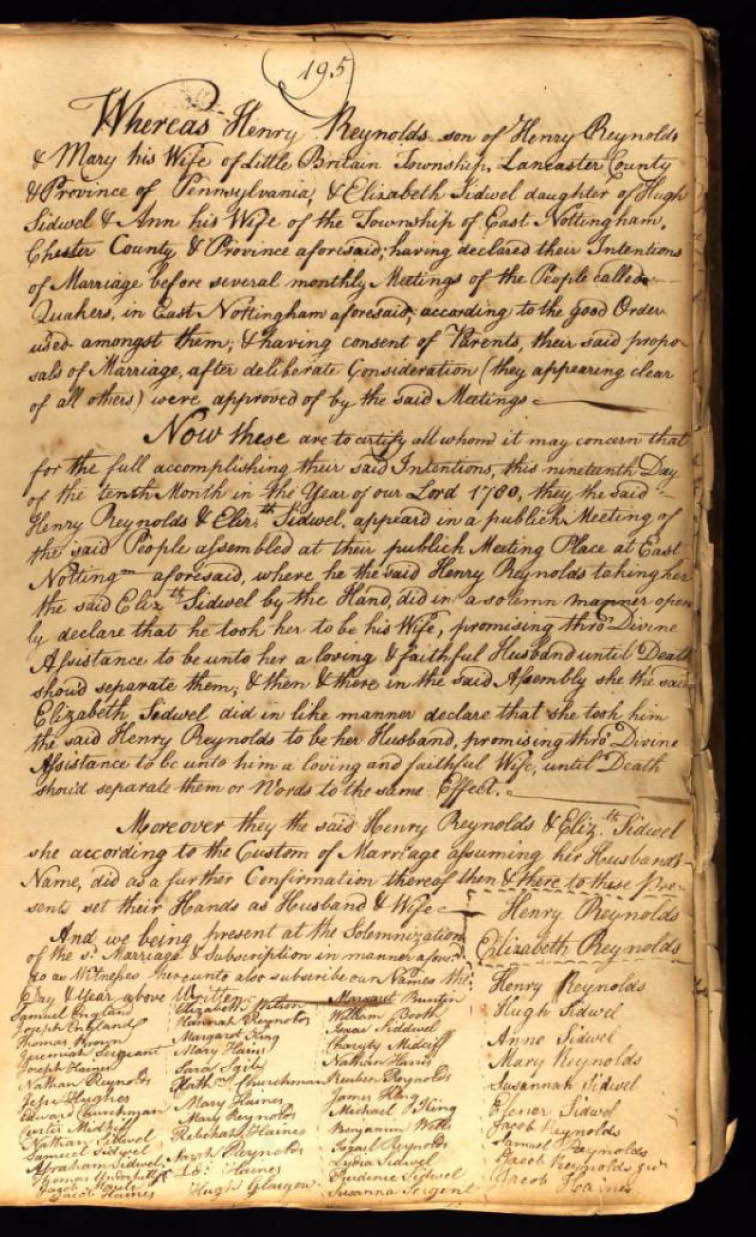 195
Whereas Henry Reynolds son of Henry Reynolds
& Mary his Wife of Little Britain Township, Lancaster County
& Province of Pennsylvania, & Elizabeth Sidwel daughter of Hugh
Sidwel & Ann his Wife of the Township of East Nottingham,
Chester County & Province aforesaid; having declared their Intentions
of Marriage before several monthly Meetings of the People called
Quakers, in East Nottingham aforesaid; according to the good Order
used amongst them; & having consent of Parents, their said propo-
sals of Marriage, after deliberate Consideration (they appearing clear
of all others) were approved of by the said Meetings
Now these are to certify all whom it may concern that
for the full accomplishing their said Intentions, this nineteenth Day
of the tenth Month in the Year of our Lord 1780, they the said
Henry Reynolds & Eliz.th Sidwel, appeard in a publick Meeting of
the said People assembled at their publick Meeting Place at East
Nottingm aforesaid, where he the said Henry Reynolds taking her
the said Elizth Sidwel by the Hand, did in a solemn manner open
ly declare that he took her to be his Wife, promising thro' Divine
Assistance to be unto her a loving & faithful Husband until Death
shoud separate them; & then & there in the said Assembly she the said
Elizabeth Sidwel did in like manner declare that she took him
the said Henry Reynolds to be her Husband, promising thro' Divine
Assistance to be unto him a loving and faithful Wife, until Death
shoud separate them or Words to the same Effect.
Moreover they the said Henry Reynolds & Eliz.th Sidwel
she according to the Custom of Marriage assuming her Husband's
Name, did as a further Confirmation thereof then & there to these Pre-
sents set their Hands as Husband & Wife
Henry Reynolds
Elizabeth Reynolds
And we being present at the Solemnization
of the sd. Marriage & Subscription in manner afores.d
do as Witnesses hereunto also subscribe our Names the
Day & Year above Written
Samuel England
Joseph England
Thomas Brown
Jeremiah Sergeant
Joseph Haines
Nathan Reynolds
Jess Hughes
Edward Churchman
Curtis Midkiff
Nathan Sidwel
Samuel Sidwel
Abraham Sidwel
Thomas
Jacob
Jacob Haines
Elizabeth Wilson
Hannah Reynolds
Margaret King
Mary Hains
Sara
Churchman
Mary Haines
Mary Reynolds
Rebekah Haines
Reynolds
Haines
Hugh Glasgow
Margaret Buntin
William Booth
Isaac Siddwel
Charyty Midciff
Nathan Hains
Reuben Reynolds
James King
Michael King
Benjamin
Israel Reynolds
Lydia Sidwel
Prudence Sidwel
Susanna Sergent
Henry Reynolds
Hugh Sidwel
Anne Sidwel
Mary Reynolds
Susannah Sidwel
Elenor Sidwel
Jacob Reynolds
Samuel Reynolds
Jacob Reynolds jur
Jacob Haines